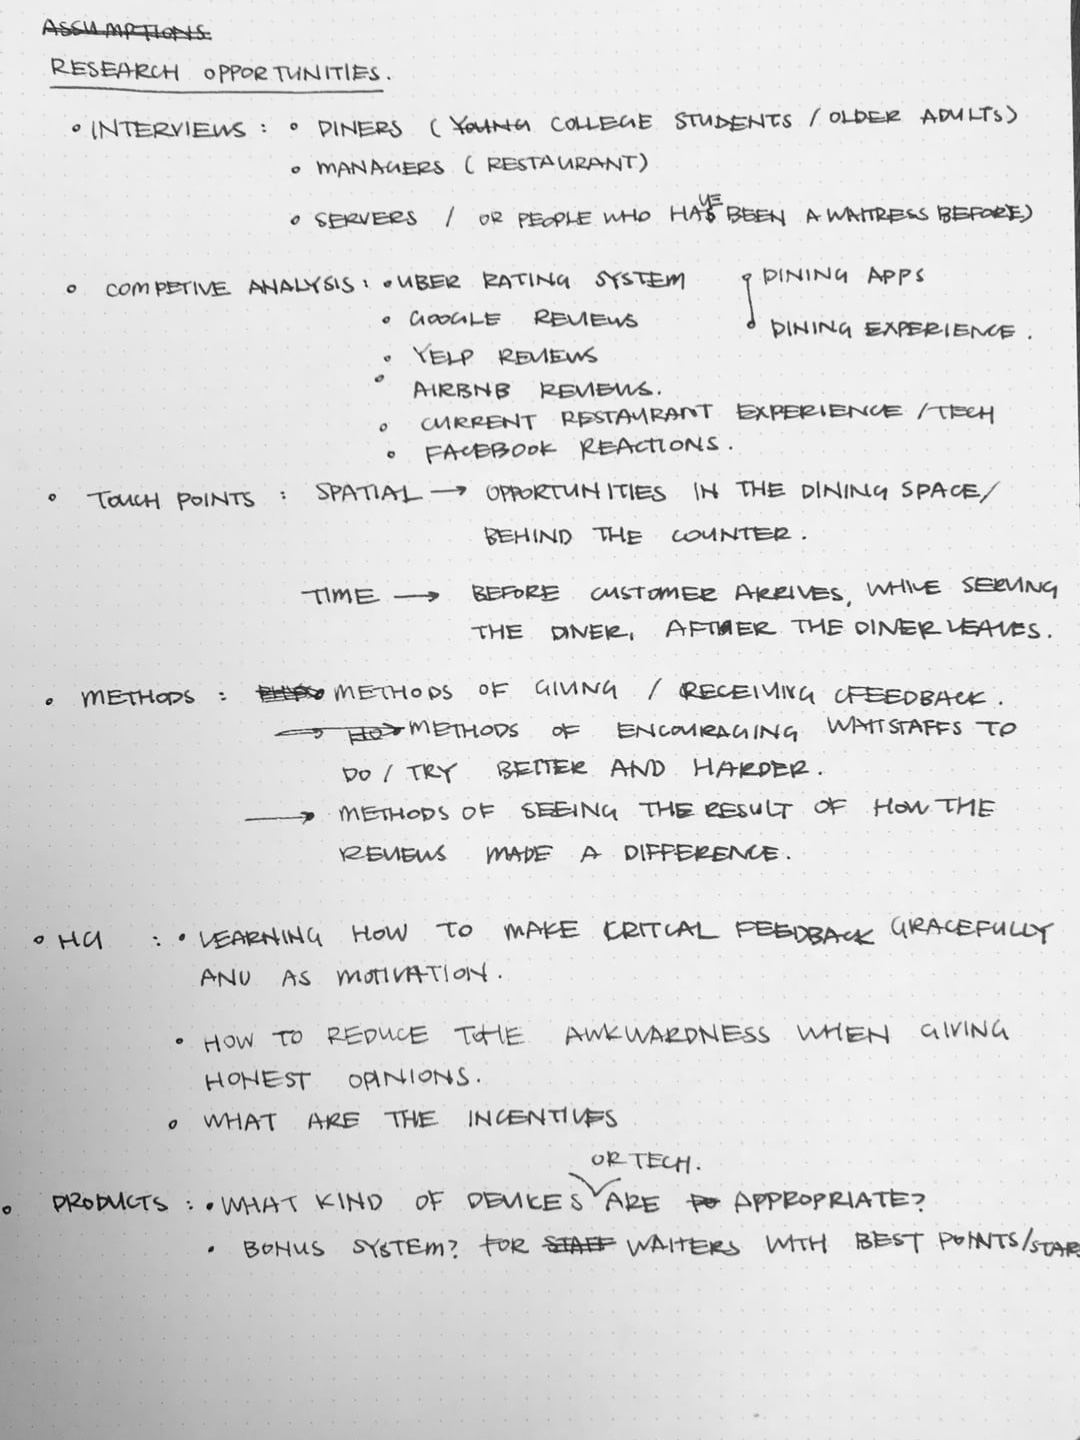 ASSUMPTIONS
RESEARCH OPPORTUNITIES.
• INTERVIEWS : • DINERS ( YOUNG COLLEGE STUDENTS / OLDER ADULTS)
• MANAGERS ( RESTAURANT)
• SERVERS / OR PEOPLE WHO HAVE BEEN A WAITRESS BEFORE)
• COMPETIVE ANALYSIS : • UBER RATING SYSTEM • DINING APPS
• GOOGLE REVIEWS • DINING EXPERIENCE.
• YELP REVIEWS
• AIRBNB REVIEWS.
• CURRENT RESTAURANT EXPERIENCE / TECH
• FACEBOOK REACTIONS.
• TOUCH POINTS : SPATIAL → OPPORTUNITIES IN THE DINING SPACE/
BEHIND THE COUNTER.
TIME → BEFORE CUSTOMER ARRIVES, WHILE SERVING
THE DINER, AFTER THE DINER LEAVES.
• METHODS : METHODS OF GIVING / RECEIVING FEEDBACK.
→ METHODS OF ENCOURAGING WAITSTAFFS TO
DO / TRY BETTER AND HARDER.
→ METHODS OF SEEING THE RESULT OF HOW THE
REVIEWS MADE A DIFFERENCE.
• HCI : • LEARNING HOW TO MAKE CRITCAL FEEDBACK GRACEFULLY
AND AS MOTIVATION.
• HOW TO REDUCE THE AWKWARDNESS WHEN GIVING
HONEST OPINIONS.
• WHAT ARE THE INCENTIVES
OR TECH.
• PRODUCTS : • WHAT KIND OF DEVICES ARE APPROPRIATE?
• BONUS SYSTEM? FOR STAFF WAITERS WITH BEST POINTS/STAR